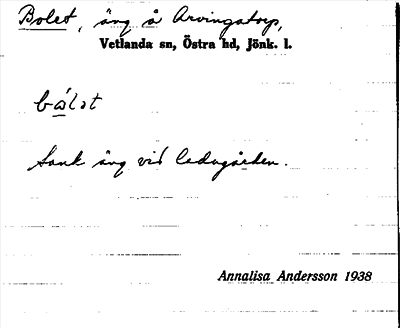 Bolet, äng å Arvingatorp,
Vetlanda sn, Östra hd, Jönk. l.
bálət
Sank äng vid ladugården.
Annalisa Andersson 1938